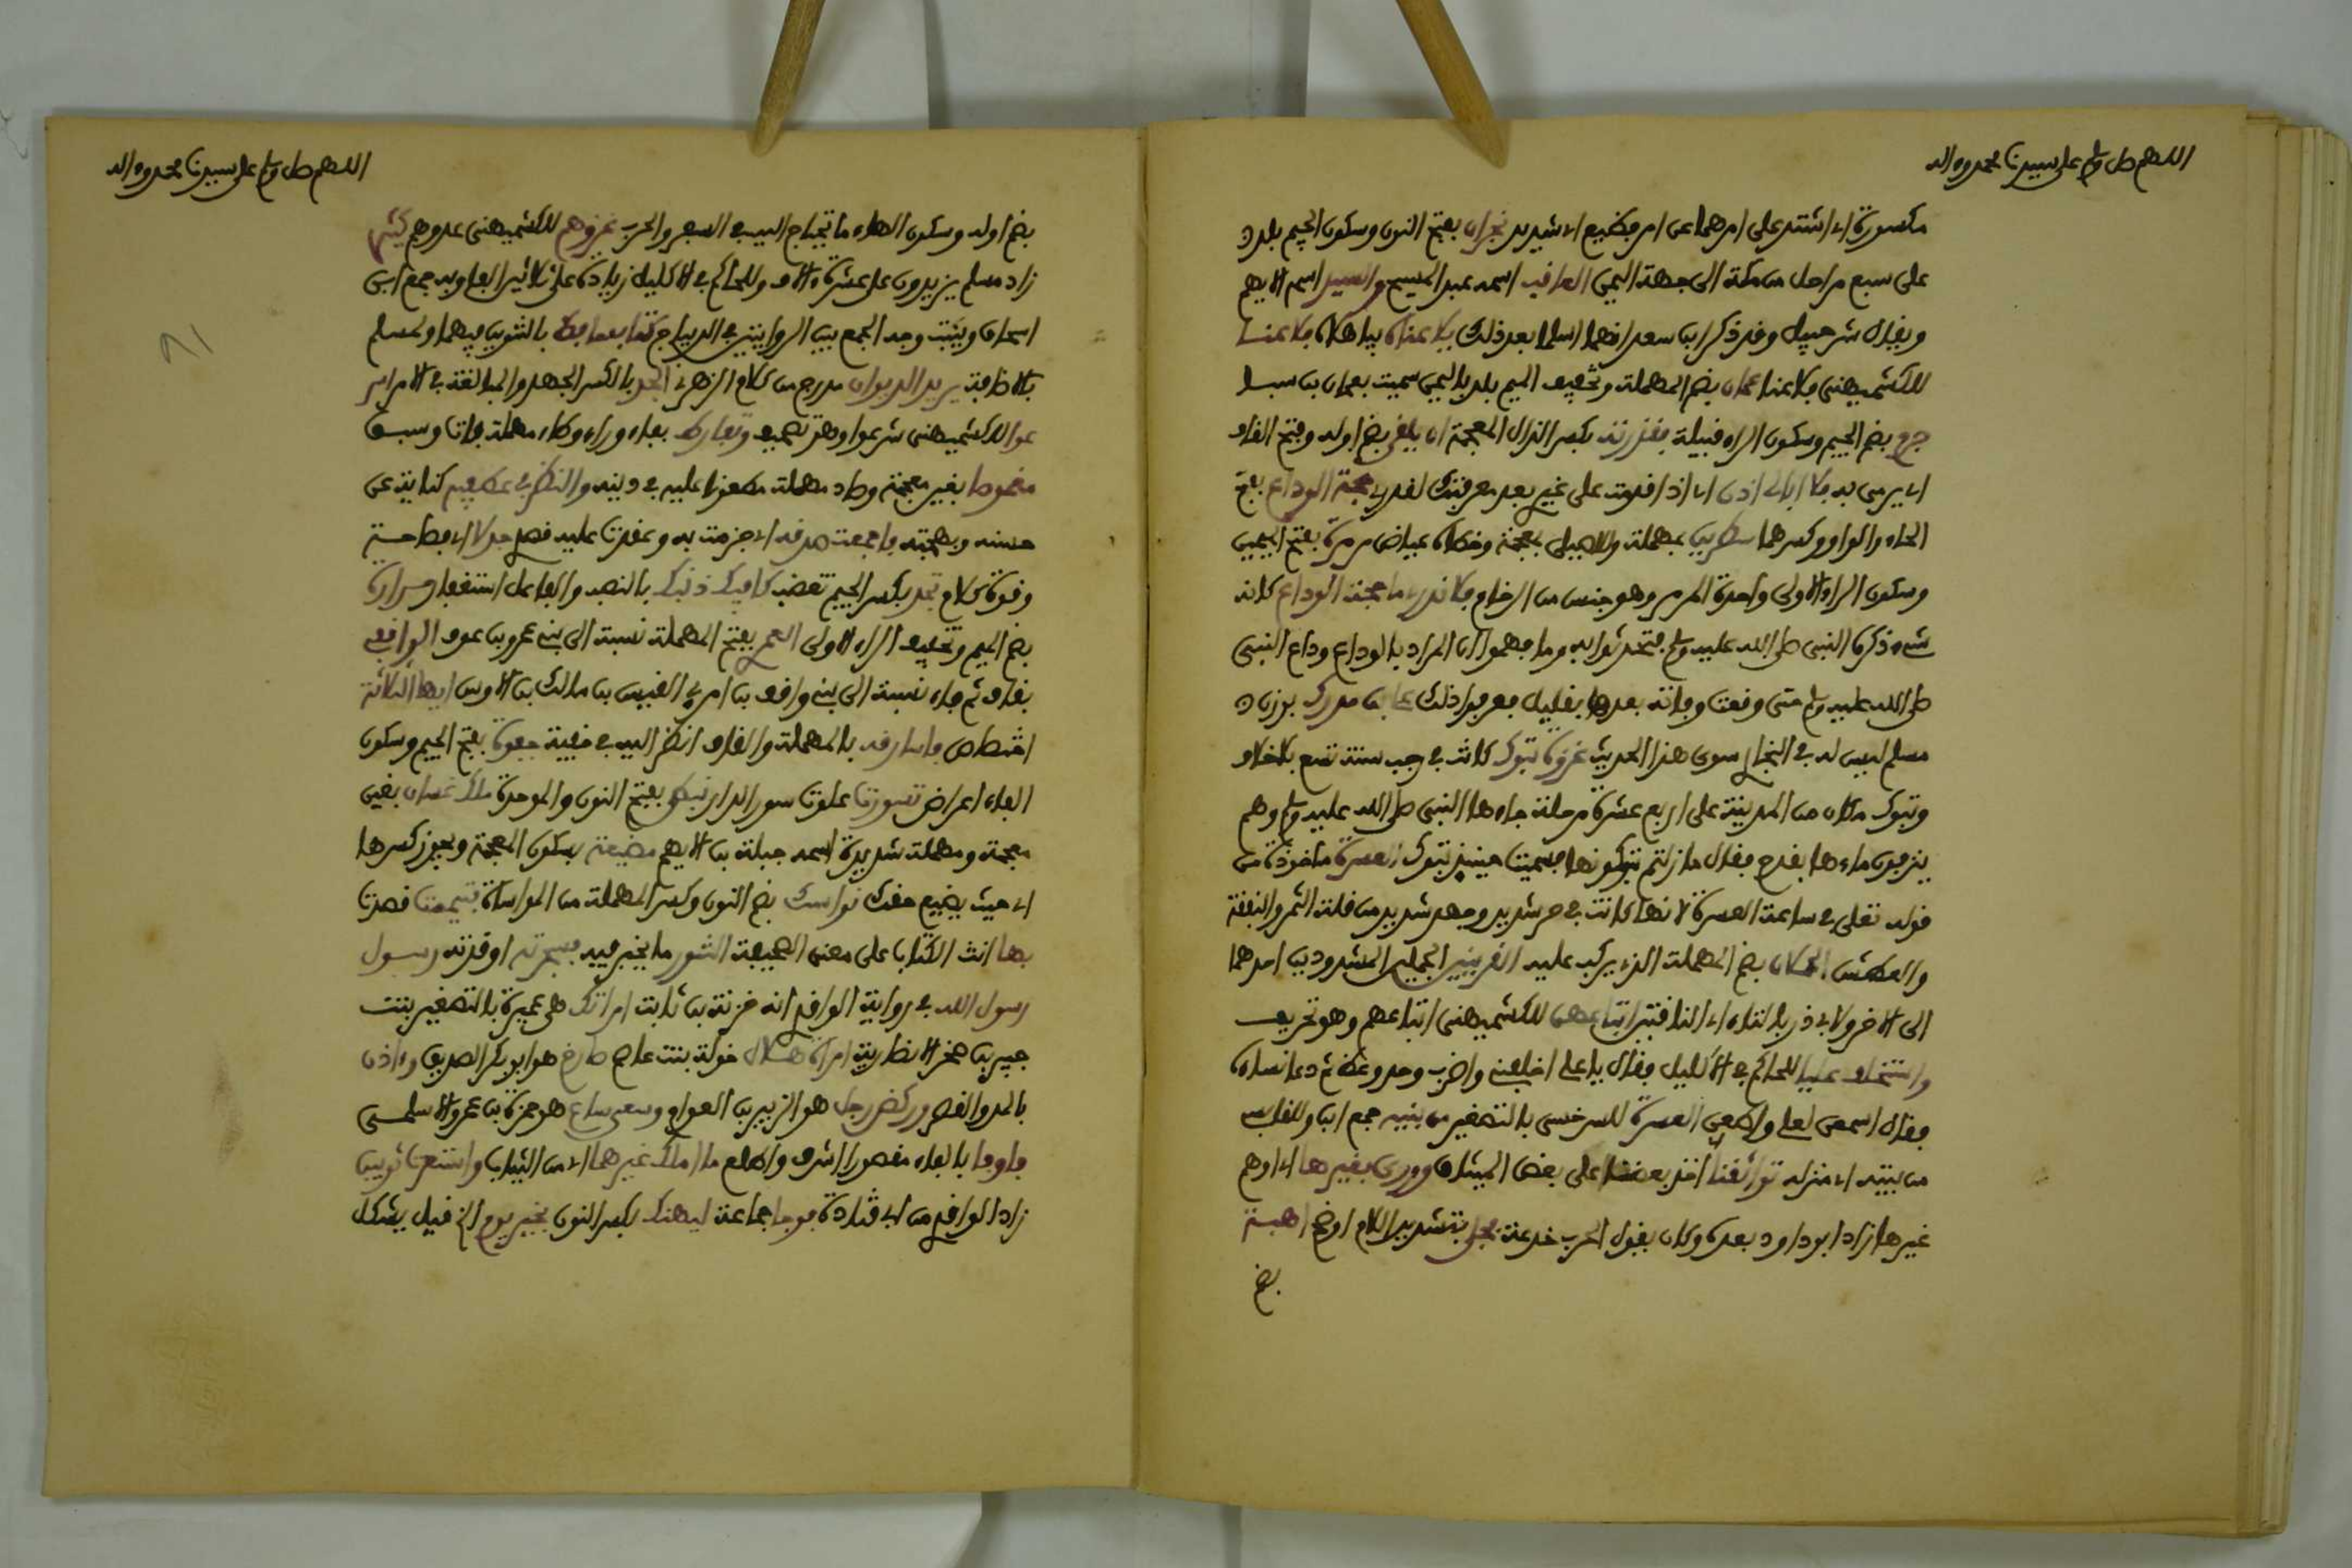 اللهم صل وسلم على سيدنا محمد وءاله
مكسورة اي اشتد على امرهما عن امر فظيع اي شديد نجران بفتح النون وسكون الجيم بلد
على سبع مراحل من مكة الى جهة اليمن العاقب اسمه عبد المسيح والسيد اسمه الايهم
ويقال شرحبيل وقد ذكر ابن سعد انهما اسلما بعد ذلك فلاعناه فلاعنا
للكشميهني فلاعنا عمان بضم المهملة وتخفيف الميم بلد باليمن سميت بعمان بن سبا
جرم بضم الجيم وسكون الراء قبيلة فقذرته بكسر الذال المعجمة ان يلقى بضم اوله وفتح القاف
اي يرمى به فلا ابالي اذن اي اذا قدمت على غير بعد معرفتك لقدري حجة الوداع بفتح
الحاء والواو وكسرهما سطرين بمهملة وللاصيلي بمعجمة وخطاه عياض مرمرة بفتح الميمين
وسكون الراء الاولى واحدة المرمر وهو جنس من الرخام فلا ندري ما حجة الوداع كانه
شيء ذكره النبي صلى الله عليه وسلم فتحدثوا به وما فهموا ان المراد بالوداع وداع النبي
صلى الله عليه وسلم حتى وقعت وفاته بعدها بقليل فعرفوا ذلك علي بن مدرك بوزن
مسلم ليس له في البخاري سوى هذا الحديث غزوة تبوك كانت في رجب سنة تسع بلا خلاف
وتبوك مكان من المدينة على اربع عشرة مرحلة جاءها النبي صلى الله عليه وسلم وهم
ينزفون ماءها بقدح فقال ما زلتم تبوكونها فسميت حينئذ تبوك العسرة ماخوذة من
قوله تعلى في ساعة العسرة لانها كانت في حر شديد وجهد شديد من قلة الثمر والنفقة
والعطش الحملان بضم المهملة الذي يركب عليه القرينين الجملين المشدودين احدهما
الى الاخر ولابي ذر بالتاء اي الناقتين ابتاعهن للكشميهني ابتاعهم وهو تحريف
واستخلف عليا للحاكم في الاكليل فقال يا علي اخلفني واضرب وخذ وعظ ثم دعا نساءه
فقال اسمعن لعلي واطعن العسرة للسرخسي بالتصغير من بنيه جمع ابن وللقابسي
من بيته اي منزله تواثقنا اخذ بعضنا على بعض الميثاق وورى بغيرها اي اوهم
غيرها زاد ابو داود بعده وكان يقول الحرب خدعة فجلى بتشديد اللام اوضح اهبة
بضم
اللهم صل وسلم على سيدنا محمد وءاله
بضم اوله وسكون الهاء ما تحتاج اليه في السفر والحرب غزوهم للكشميهني عدوهم كثير
زاد مسلم يزيدون على عشرة ءالاف وللحاكم في الاكليل زيادة على ثلاثين الفا وبه جمع ابن
اسحاق وبينت وجه الجمع بين الروايتين في الديباج كتاب حافظ بالتنوين فيهما ولمسلم
بالاضافة يريد الديوان مدرج من كلام الزهري الجد بالكسر الجهد والمبالغة في الامر اسر
عوا للكشميهني شرعوا وهو تصحيف وتفارط بفاء وراء وطاء مهملة فات وسبق
مغموصا بغين معجمة وصاد مهملة مطعونا عليه في دينه والنظر في عطفيه كناية عن
حسنه وبهجته فاجمعت صدقه اي جزمت به وعقدت عليه قصدي جدلا اي فصاحة
وقوة كلام تجد بكسر الجيم تغضب كافيك ذنبك بالنصب والفاعل استغفار مرارة
بضم الميم وتخفيف الراء الاولى العمري بفتح المهملة نسبة الى بني عمرو بن عوف الواقفي
بقاف ثم فاء نسبة الى بني واقف بن امرئ القيس بن مالك بن الاوس ايها الثلاثة
اختصاص فاسارقه بالمهملة والقاف انظر اليه في خفية جفوة بفتح الجيم وسكون
الفاء اعراض تسورت علوت سور الدار نبطي بفتح النون والموحدة ملك غسان بغين
معجمة ومهملة شديدة اسمه جبلة بن الايهم مضيعة بسكون المعجمة ويجوز كسرها
اي حيث يضيع حقك نواسك بضم النون وكسر المهملة من المواساة فتيممت قصدت
بها انث الكتاب على معنى الصحيفة التنور ما يخبز فيه فسجرته اوقدته رسول
رسول الله في رواية الواقدي انه خزيمة بن ثابت امراتك هي عميرة بالتصغير بنت
جبير بن صخر الانصارية امراة هلال خولة بنت عاصم صارخ هو ابو بكر الصديق وءاذن
بالمد والقصر وركض رجل هو الزبير بن العوام وسعى ساع هو حمزة بن عمرو الاسلمي
فاوفى بالفاء مقصورا اشرف واطلع ما املك غيرهما اي من الثياب واستعرت ثوبين
زاد الواقدي من ابي قتادة فوجا جماعة ليهنك بكسر النون بخير يوم الخ قيل يشكل